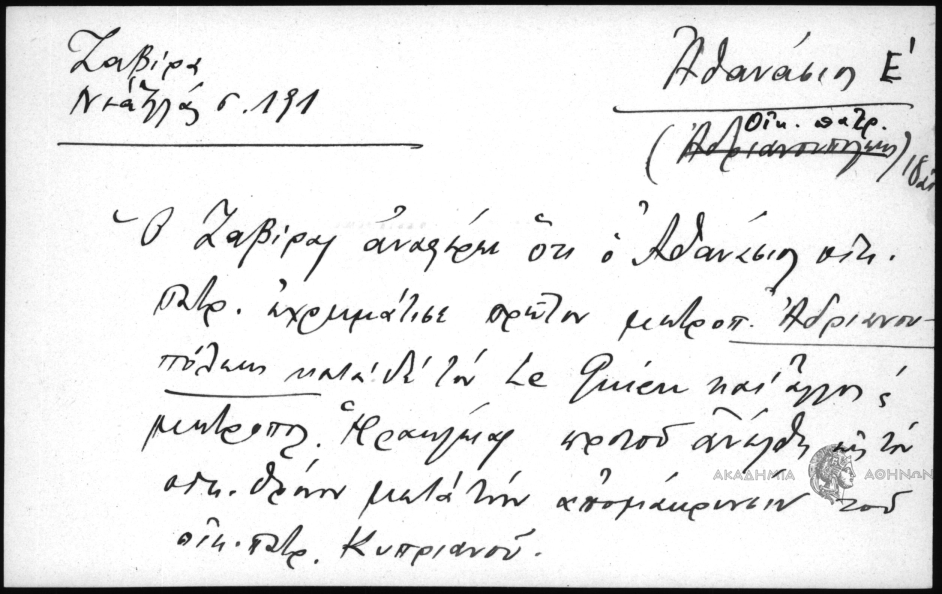 Ζαβίρα
Νέα Ἑλλάς σ. 191
Ἀθανάσιος Ε΄
Οἰκ. πατρ.
(Ἀδριανουπόλεως)
Ὁ Ζαβίρας ἀναφέρει ὅτι ὁ Ἀθανάσιος οἰκ.
πατρ. ἐχρημάτισε πρῶτον μητροπ. Ἀδριανου-
πόλεως κατά δέ τόν Le Quien καί ἄλλους
μητροπολ. Ἡρακλείας προτοῦ ἀνέλθη εἰς τόν
οἰκ. θρόνον μετά τήν ἀπομάκρυνσιν τοῦ
οἰκ. πατρ. Κυπριανοῦ.
ΑΚΑΔΗΜΙΑ ΑΘΗΝΩΝ